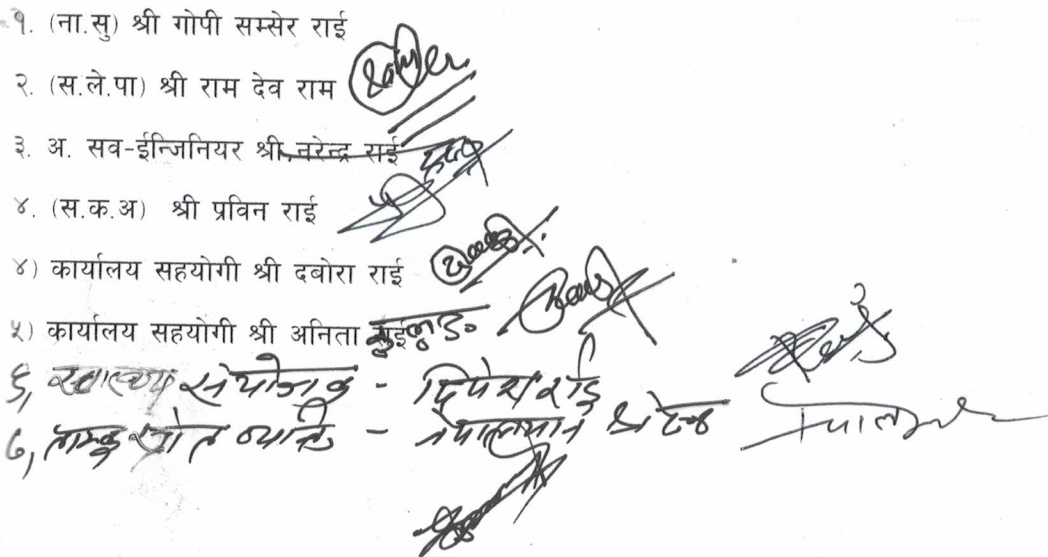 १. (ना.सु) श्री गोपी सम्सेर राई
२. (स.ले.पा) श्री राम देव राम
३. अ. सव-ईन्जिनियर श्री नरेन्द्र राई
४. (स.क.अ) श्री प्रविन राई
४) कार्यालय सहयोगी श्री दबोरा राई
५) कार्यालय सहयोगी श्री अनिता
६, स्वास्थ्य संयोजक - दिपेश राई
७, स्रोत व्यक्ति - नेपालमान श्रेष्ठ